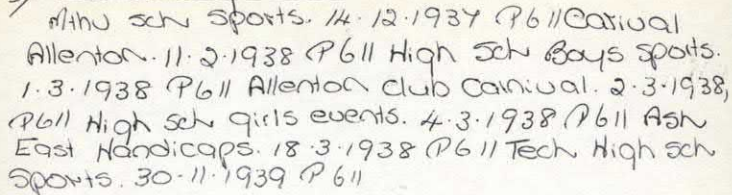 Mthu sch sports. 14.12.1937 P611 Carival
Allenton. 11.2.1938 P611 High Sch Boys Sports.
1.3.1938 P611 Allenton club Carnival. 2.3.1938,
P611 High sch girls events. 4.3.1938 P611 Ash
East Handicaps. 18.3.1938 P611 Tech High sch
Sports. 30.11.1939 P611